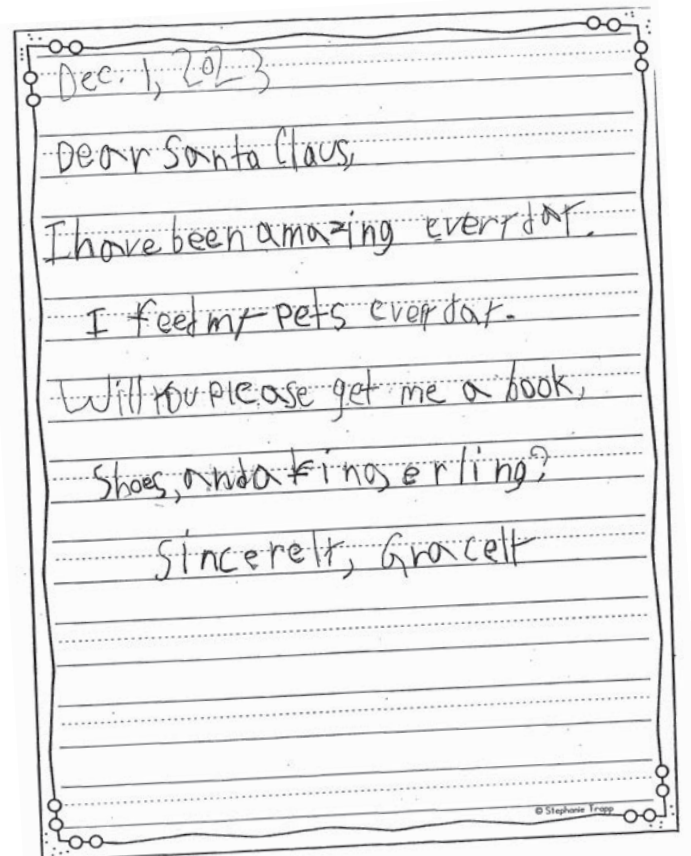 Dec. 1, 2023
Dear Santa Claus,
I have been amazing everyday.
I feed my pets everyday.
Will you please get me a book,
Shoes, and a fingerling?
Sincerely, Gracely
© Stephanie Trapp